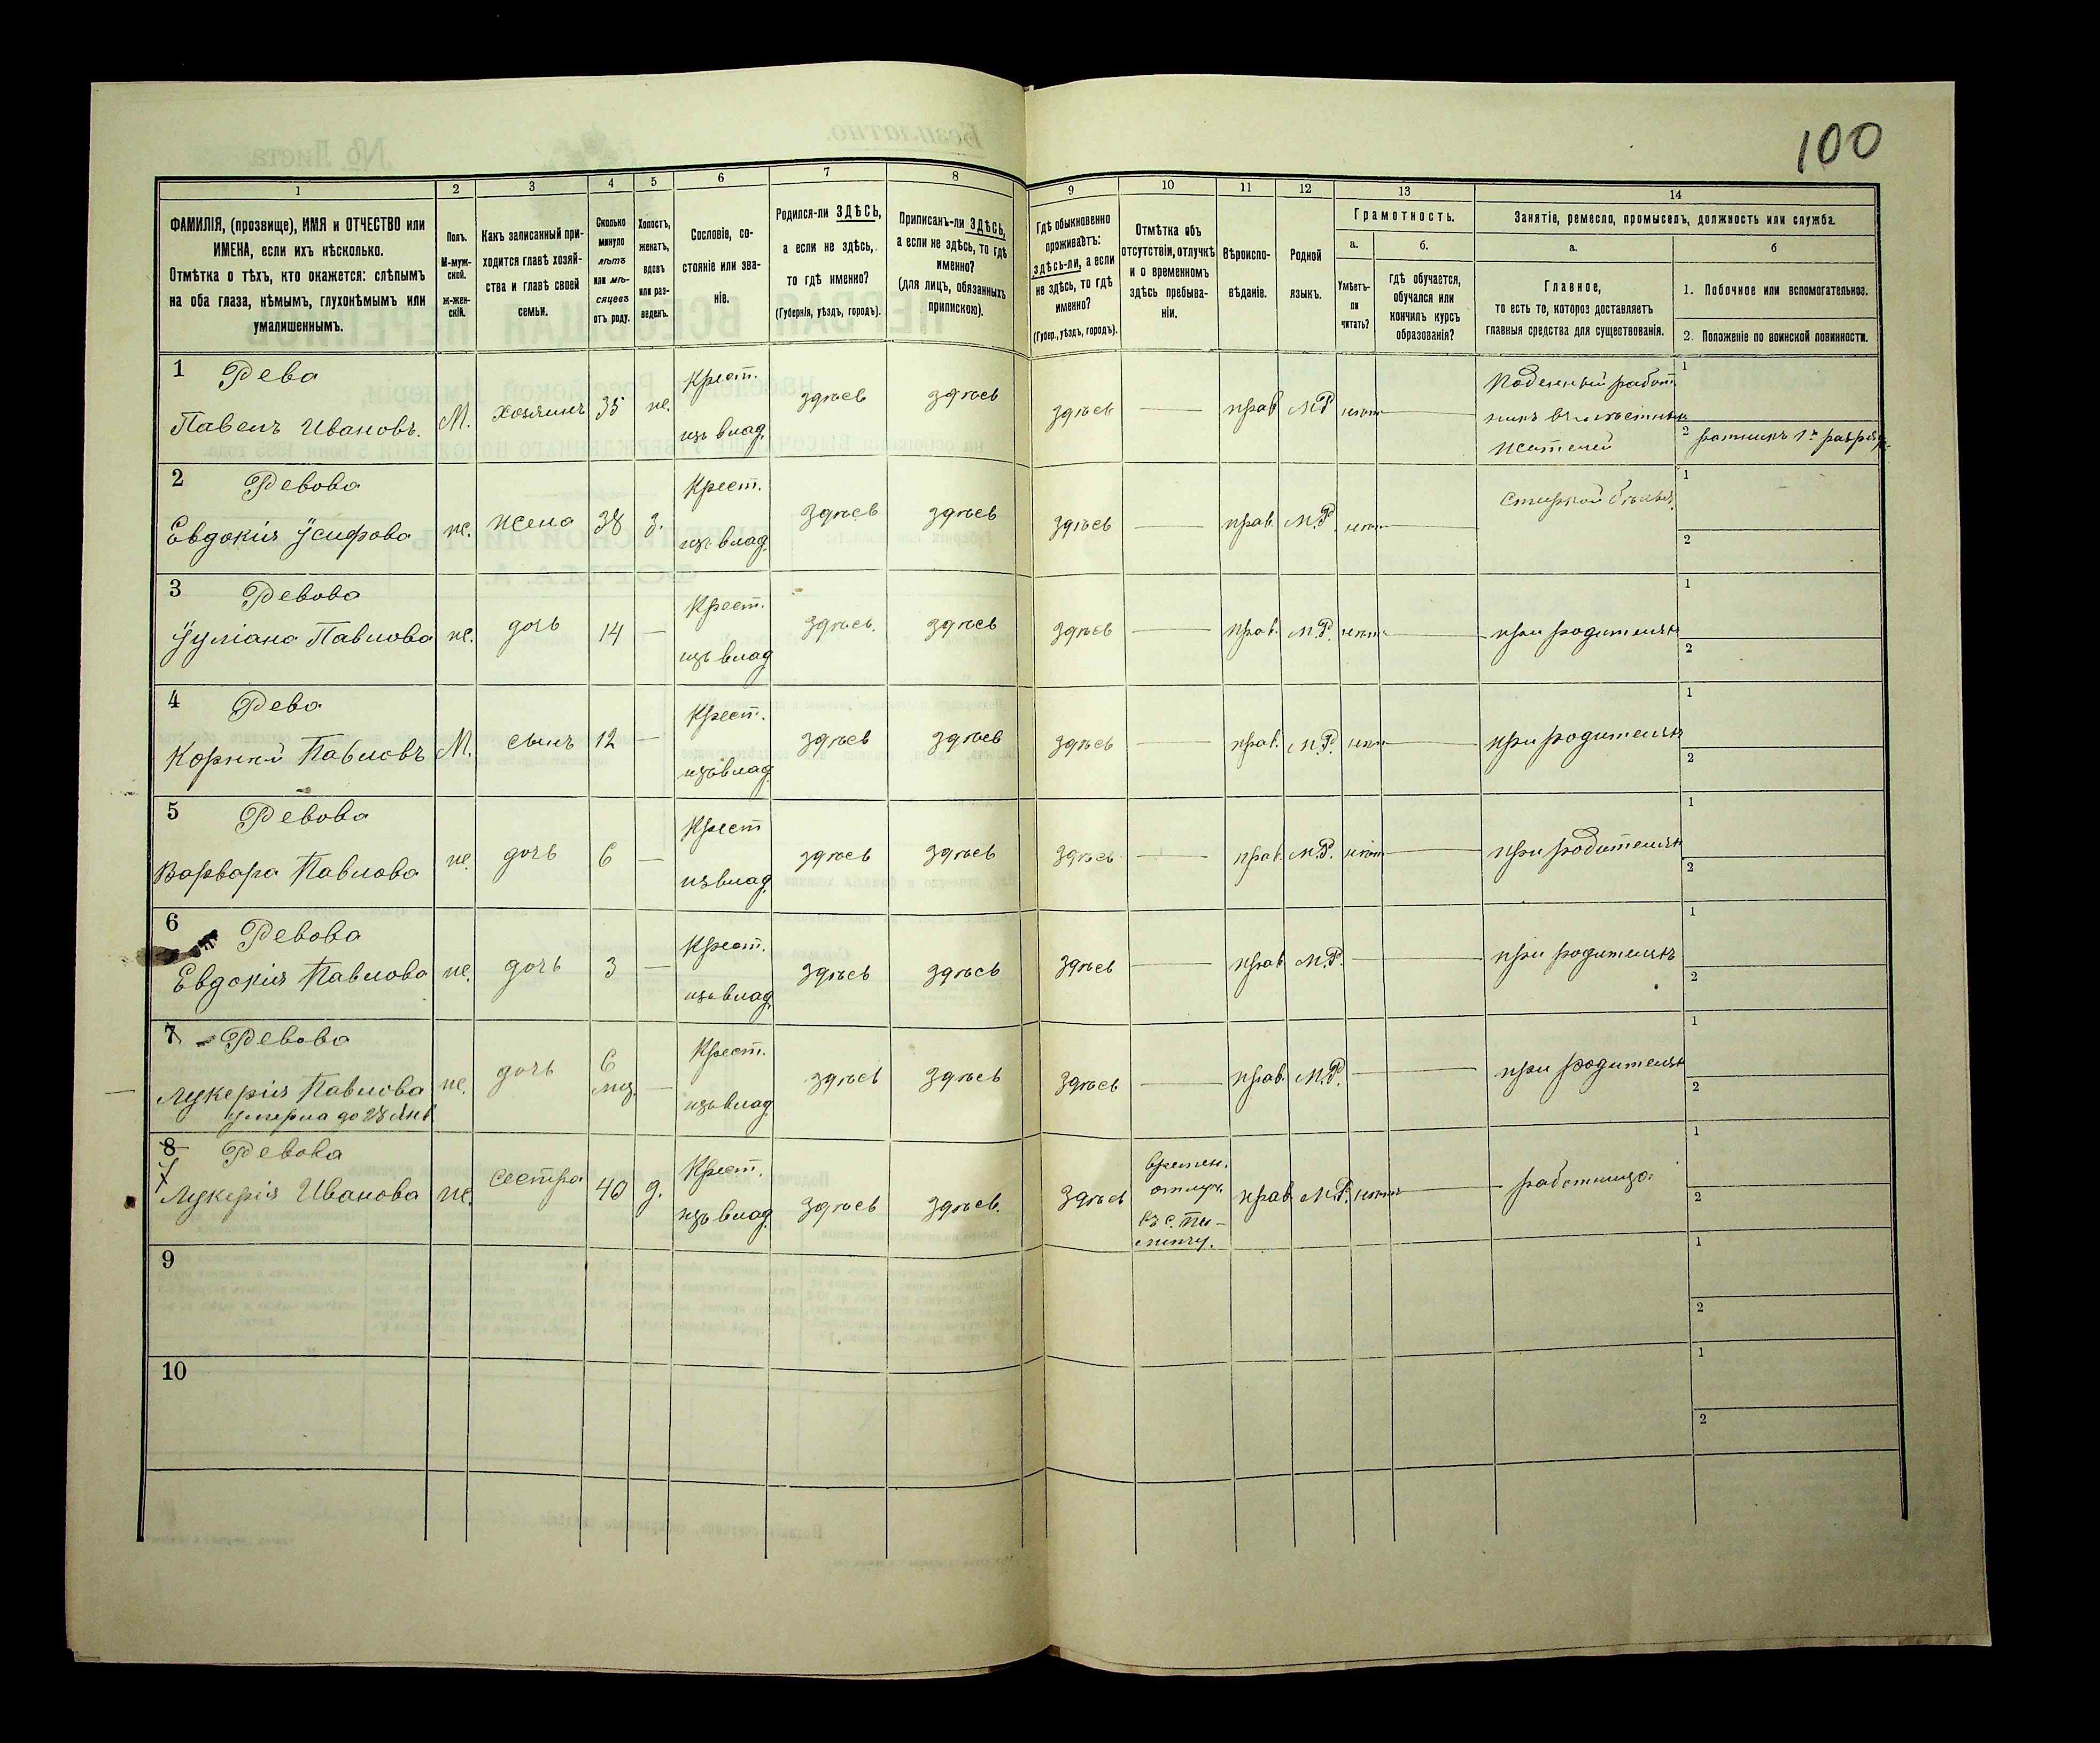 100
1 2 3 4 5 6 7 8 9 10 11 12 13 14
ФАМИЛІЯ, (прозвище), ИМЯ и ОТЧЕСТВО или
ИМЕНА, если ихъ нѣсколько.
Отмѣтка о тѣхъ, кто окажется: слѣпымъ
на оба глаза, нѣмымъ, глухонѣмымъ или
умалишеннымъ.
Полъ.
М-муж-
ской.
ж-жен-
скій.
Какъ записанный при-
ходится главѣ хозяй-
ства и главѣ своей
семьи.
Сколько
минуло
лѣтъ
или мѣ-
сяцевъ
отъ роду.
Холостъ,
женатъ,
вдовъ
или раз-
веденъ.
Сословіе, со-
стояніе или зва-
ніе.
Родился-ли ЗДѢСЬ,
а если не здѣсь,
то гдѣ именно?
(Губернія, уѣздъ, городъ).
Приписанъ-ли ЗДѢСЬ,
а если не здѣсь, то гдѣ
именно?
(для лицъ, обязанныхъ
припискою).
Гдѣ обыкновенно
проживаетъ:
здѣсь-ли, а если
не здѣсь, то гдѣ
именно?
(Губер., уѣздъ, городъ).
Отмѣтка объ
отсутствіи, отлучкѣ
и о временномъ
здѣсь пребыва-
ніи.
Вѣроиспо-
вѣданіе.
Родной
языкъ.
Грамотность.
а.
Умѣетъ-
ли
читать?
б.
Гдѣ обучается,
обучался или
кончилъ курсъ
образованія?
Занятіе, ремесло, промыселъ, должность или служба.
а.
Главное,
то есть то, которое доставляетъ
главныя средства для существованія.
б
1. Побочное или вспомогательное.
2. Положеніе по воинской повинности.
1 Рева
Павелъ Ивановъ. М. хозяинъ 35 ж. Крест. изъ влад. здѣсь здѣсь здѣсь — прав М.Р нѣтъ — Поденный работ
никъ въ мѣстныхъ
жителей
1
2 ратникъ 1го разряд.
2 Ревова
Евдокія Усифова ж. жена 38 з. Крест. изъ влад. здѣсь здѣсь здѣсь — прав. М.Р. нѣтъ — Стиркой бѣлья
1
2
3 Ревова
Ууліана Павлова ж. дочь 14 — Крест. изъ влад здѣсь. здѣсь здѣсь — прав. М.Р. нѣтъ — при родителяхъ
1
2
4 Рева
Корній Павловъ М. сынъ 12 — Крест. изъ влад. здѣсь здѣсь здѣсь — прав. М.Р. нѣтъ — при родителяхъ
1
2
5 Ревова
Варвара Павлова ж. дочь 6 — Крест из влад. здѣсь здѣсь здѣсь — прав. М.Р. нѣтъ — при родителяхъ
1
2
6 Ревова
Евдокія Павлова ж. дочь 3 — Крест. изъ влад. здѣсь здѣсь здѣсь — прав М.Р. — при родителяхъ
1
2
7 Ревова
Лукерія Павлова ж. дочь 6 мц. — Крест. изъ влад здѣсь здѣсь здѣсь — прав. М.Р. — при родителяхъ
умерла до 28 Янв
1
2
8 Ревова
7 Лукерія Иванова ж. сестра 40 д. Крест. изъ влад здѣсь здѣсь. здѣсь времен.
отлуч.
въ с.
прав М.Р. нѣтъ — работница.
1
2
9
1
2
10
1
2